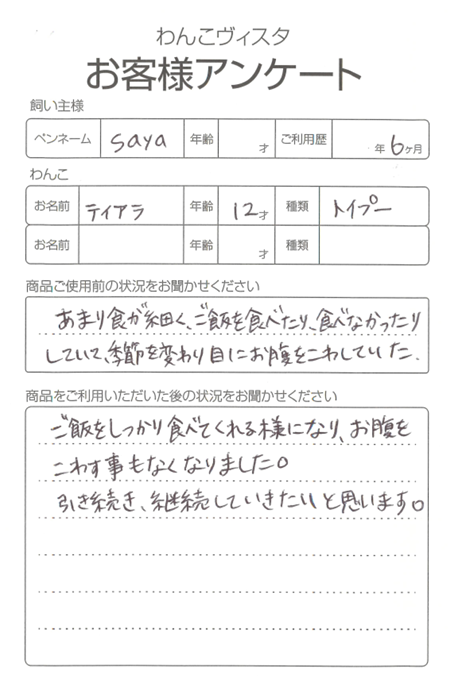 わんこヴィスタ
お客様アンケート
飼い主様
ペンネーム saya 年齢 才 ご利用歴 年 6ヶ月
わんこ
お名前 ティアラ 年齢 12才 種類 トイプー
お名前 年齢 才 種類
商品ご使用前の状況をお聞かせください
あまり食が細く、ご飯を食べたり、食べなかったり
していて、季節を変わり目にお腹をこわしていた。
商品をご利用いただいた後の状況をお聞かせください
ご飯をしっかり食べてくれる様になり、お腹を
こわす事もなくなりました。
引き続き、継続していきたいと思います。